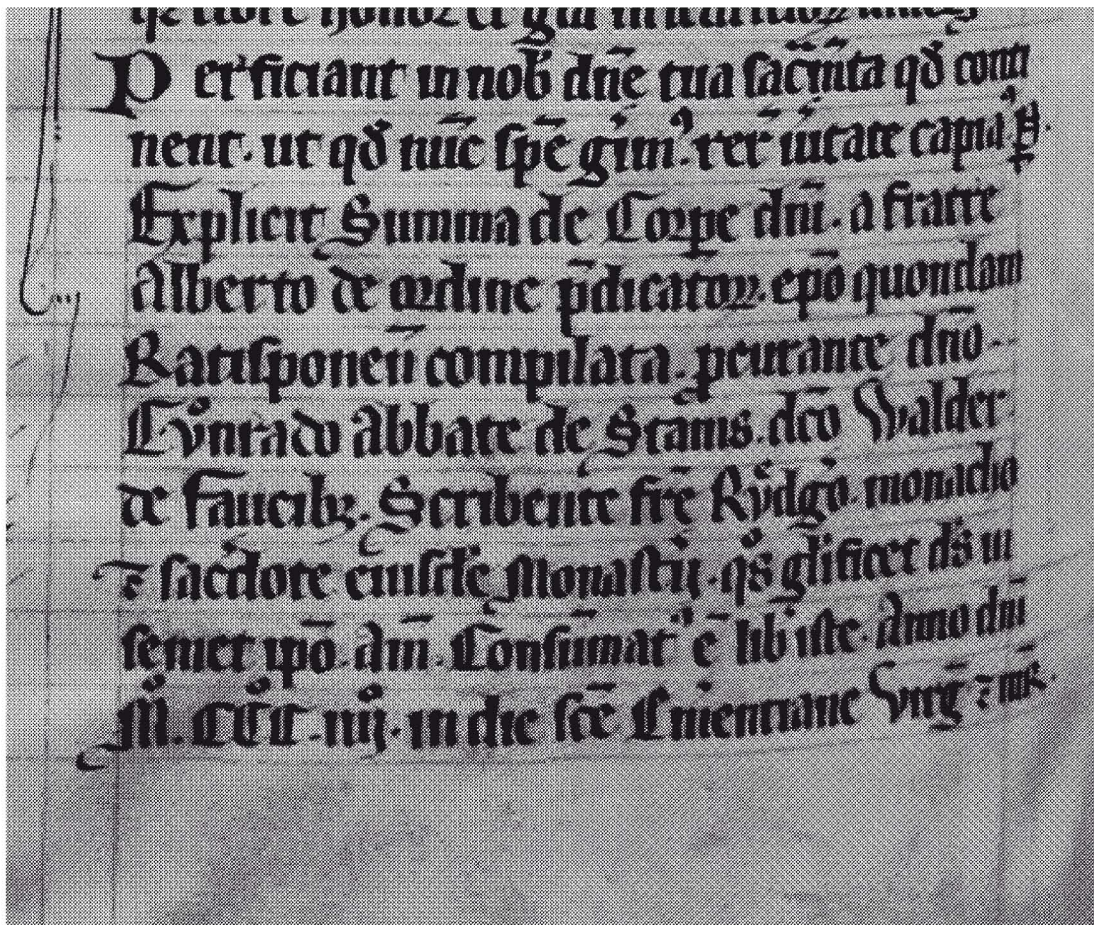 honor et gl̄ia in
Perficiant in nob̄ dn̄e tua sac̄m̄ta qd̄ conti
nent. ut qd̄ nūc spē gim᷒. reꝝ ūitate capiaꝰ. P.
Explicit Summa de Corꝑe dn̄i. a fratre
Alberto de ordine p̄dicatoꝝ. ep̄o quondam
Ratisponen̄ compilata. ꝓcurante dn̄o
Cvͦnrado abbate de Stams. dc̄o Walder
de Faucibꝫ. Scribente fr̄e Rvͤdgͦo. monacho
⁊ sac̄dote eiusdē Monast̄ij. qͦs gl̄ificet ds̄ in
semet ip̄o. Am̄. Consūmatꝰ ē lib̾ iste. Anno dn̄i
Mͦ. CCͦCͦ. iiij. in die sc̄e Emerentiane Virḡ ⁊ mr̄.